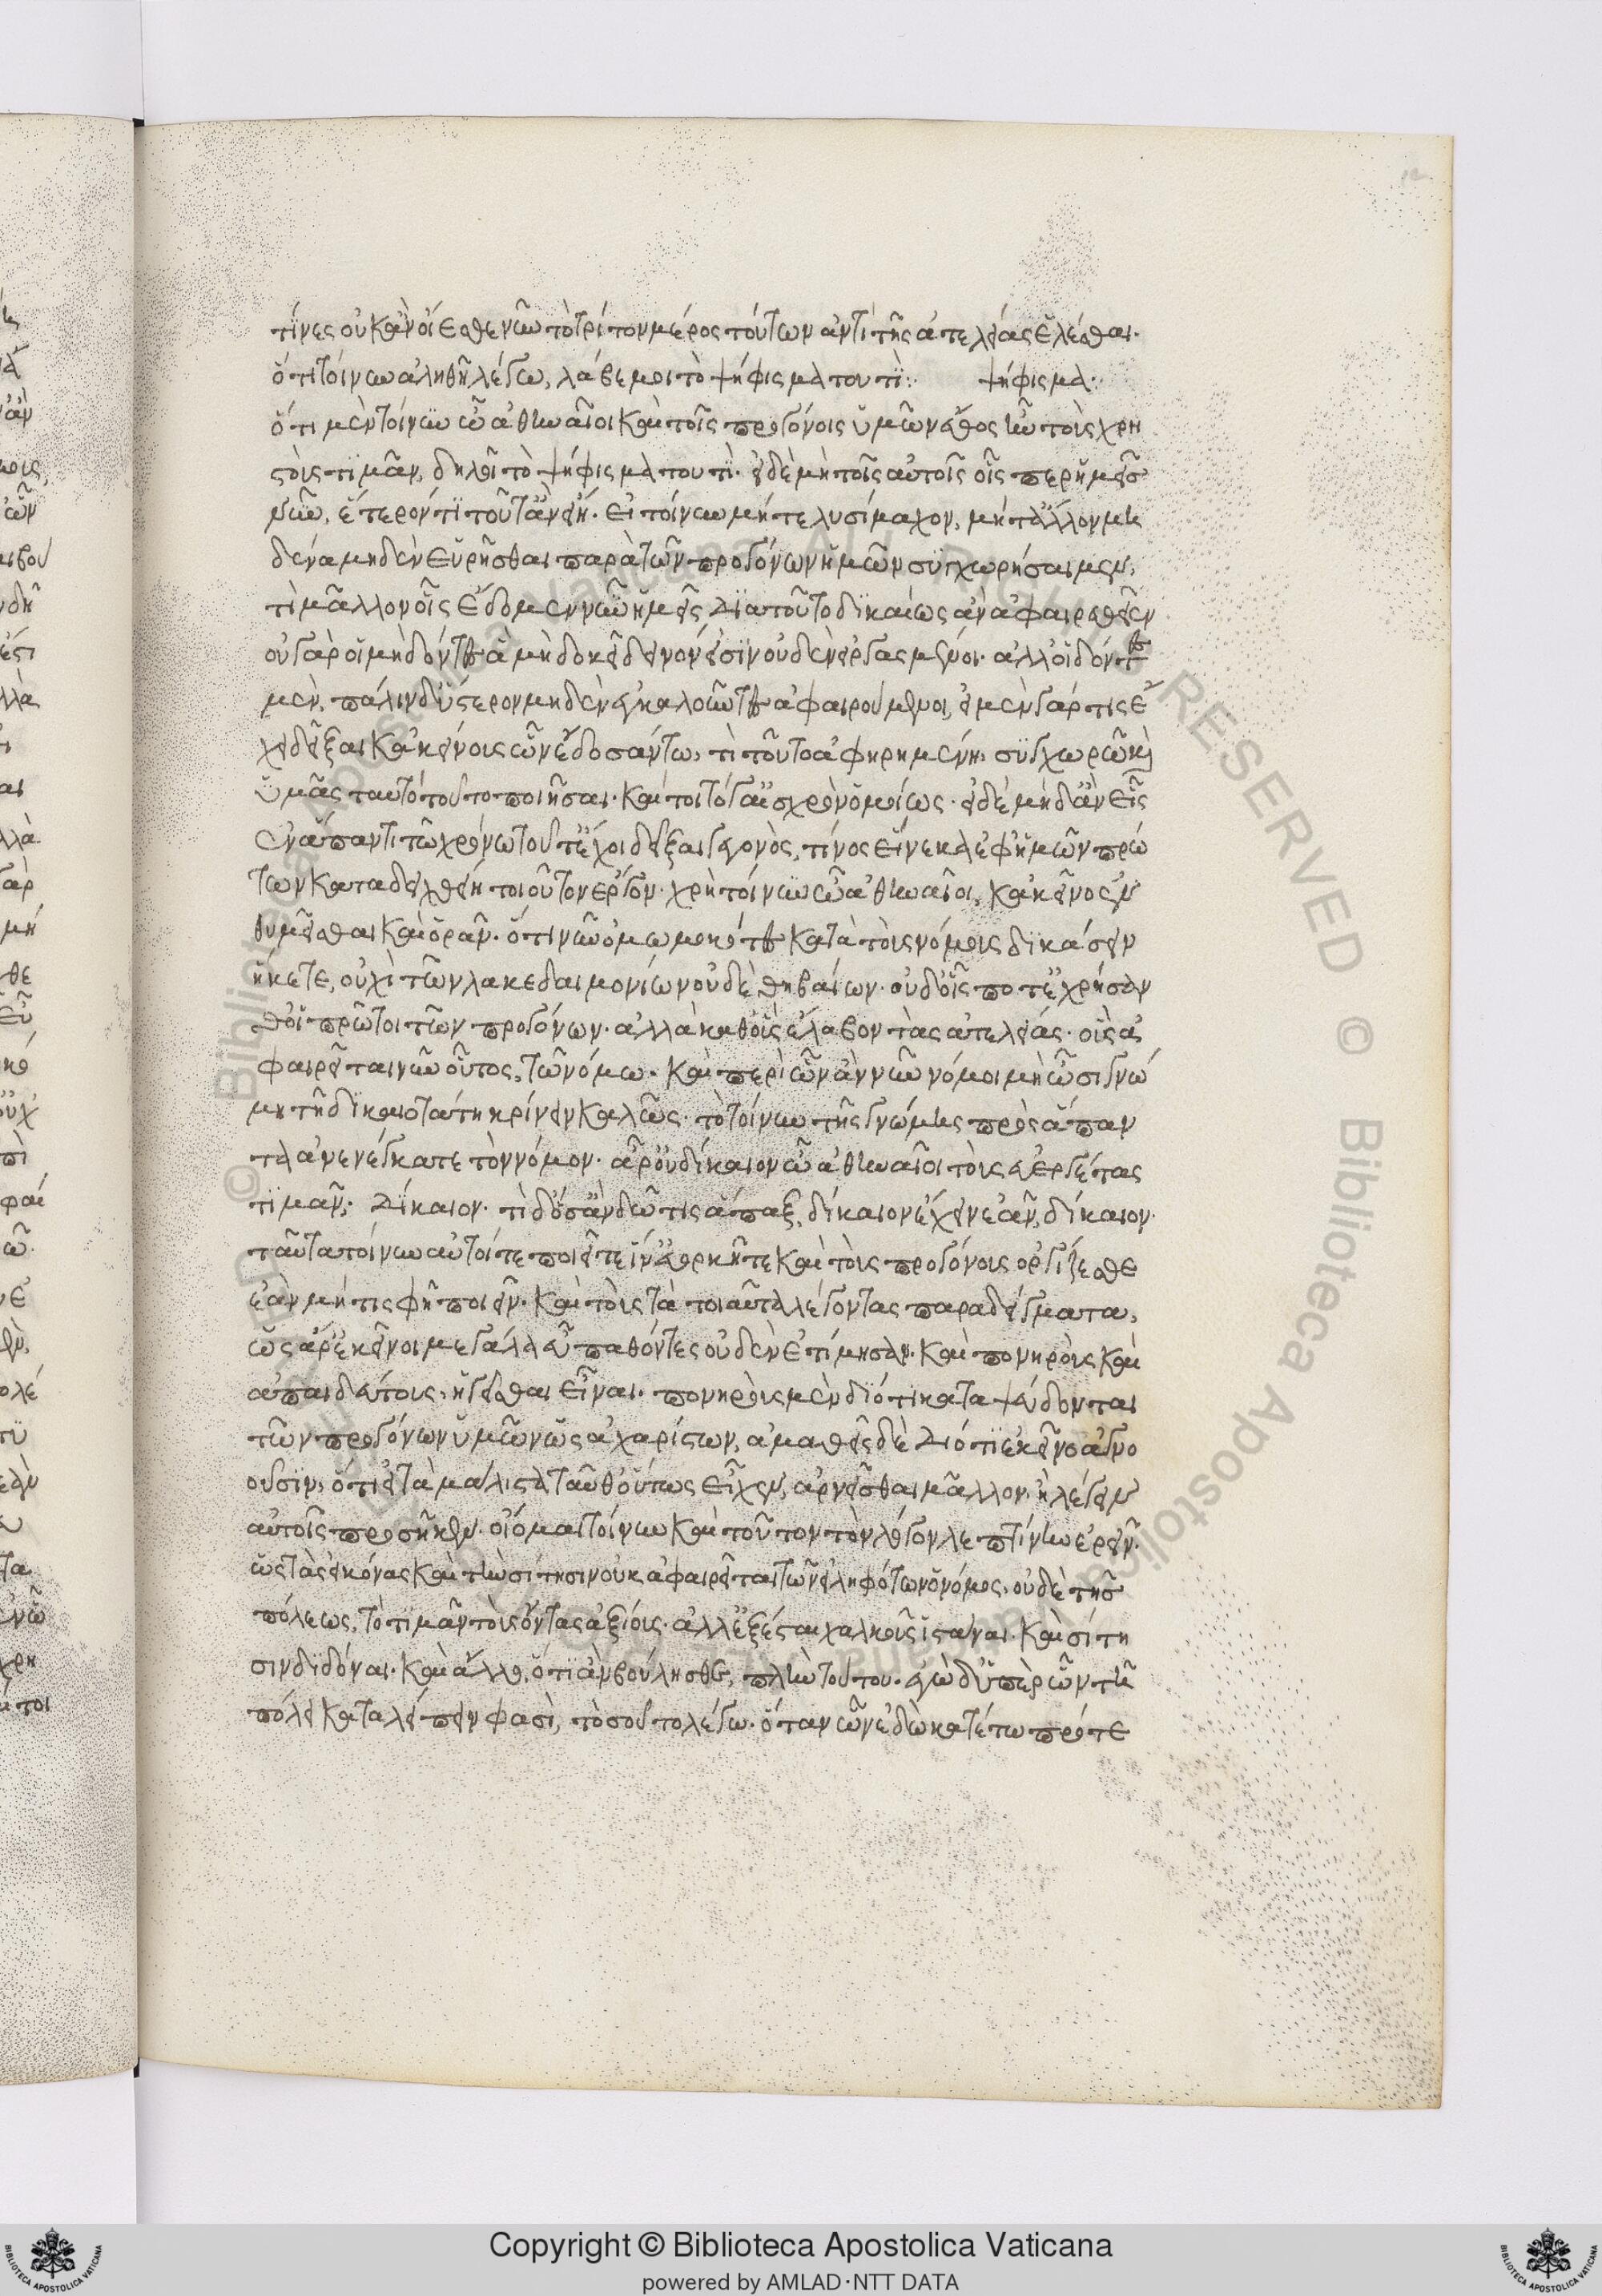 τίνες οὐκ ἂν οἴεσθε νῦν τὸ τρίτον μέρος τούτων ἀντὶ τῆς ἀτελείας ἑλέσθαι.
ὅτι τοίνυν ἀληθῆ λέγω, λάβε μοι τὸ ψήφισμα τουτί: ψήφισμα:
ὅτι μὲν τοίνυν ὦ ἀθηναῖοι καὶ τοῖς προγόνοις ὑμῶν ἔθος ἦν τοὺς χρη
στοὺς τιμᾶν, δηλοῖ τὸ ψήφισμα τουτί. εἰ δὲ μὴ τοῖς αὐτοῖς οἷσπερ ἡμεῖς
νῦν, ἕτερόν τι τοῦτ ἂν εἴη. εἰ τοίνυν μήτε λυσίμαχον, μήτ ἄλλον μη
δένα μηδὲν εὑρῆσθαι παρὰ τῶν προγόνων ἡμῶν συγχωρήσαιμεν,
τί μᾶλλον οἷς ἔδομεν νῦν ἡμεῖς διὰ τοῦτο δικαίως ἂν ἀφαιρεθεῖεν
οὐ γὰρ οἱ μὴ δόντες ἃ μὴ δοκεῖ δεινόν εἰσιν οὐδὲν εἰργασμένοι. ἀλλ οἱ δόντες
μὲν, πάλιν δ ὕστερον μηδὲν ἐγκαλοῦντες ἀφαιρούμενοι, εἰ μὲν γάρ τις ἔ
χει δεῖξαι κἀκείνους ὧν ἔδοσάν τω, τὶ τοῦτο ἀφηρημένη, συγχωρῶ καὶ
ὑμᾶς ταυτὸ τοῦτο ποιῆσαι. καί τοι τό γ αἰσχρὸν ὁμοίως. εἰ δὲ μηδ ἂν εἷς
ἐν ἅπαντι τῶ χρόνω τοῦτ ἔχοι δεῖξαι γεγονὸς, τίνος εἵνεκα ἐφ ἡμῶν πρώ
των καταδειχθείη τοιοῦτον ἔργον. χρὴ τοίνυν ὦ ἀθηναῖοι, κἀκεῖνο ἐν
θυμεῖσθαι καὶ ὁρᾶν. ὅτι νῦν ὀμωμοκότες κατὰ τοὺς νόμους δικάσειν
ἥκετε, οὐχὶ τῶν λακεδαιμονίων οὐδὲ θηβαίων. οὐδ οἷς ποτ ἐχρήσαν
θ οἱ πρῶτοι τῶν προγόνων. ἀλλὰ καθ οὓς ἔλαβον τὰς ἀτελείας. οὓς ἀ
φαιρεῖται νῦν οὗτος, τῶ νόμω. καὶ περὶ ὧν ἂν νῦν νόμοι μὴ ὦσι γνώ
μη τῆ δικαιοτάτη κρίνειν καλῶς. τὸ τοίνυν τῆς γνώμης πρὸς ἅπαν
τα ἀνενέγκατε τὸν νόμον. ἆρ οὖν δίκαιον ὦ ἀθηναῖοι τοὺς εὐεργέτας
τιμᾶν; δίκαιον. τί δ ὅσ ἂν δῶ τις ἅπαξ, δίκαιον ἔχειν ἐᾶν, δίκαιον.
ταῦτα τοίνυν αὐτοί τε ποιεῖτε ἵν εὐορκῆτε καὶ τοῖς προγόνοις ὀργίζεσθε
ἐὰν μή τις φῆ ποιεῖν. καὶ τοὺς τὰ τοιαῦτα λέγοντας παραδείγματα,
ὡς ἄρ ἐκεῖνοι μεγάλα εὖ παθόντες οὐδὲν ἐτίμησαν. καὶ πονηροὺς καὶ
ἀπαιδεύτους, ἡγεῖσθαι εἶναι. πονηροὺς μὲν διότι καταψεύδονται
τῶν προγόνων ὑμῶν ὡς ἀχαρίστων, ἀμαθεῖς δὲ διότι ἐκεῖνο ἀγνο
οῦσιν, ὅτι εἰ τὰ μάλιστα ταῦθ οὕτως εἶχεν, ἀρνεῖσθαι μᾶλλον, ἢ λέγειν
αὐτοῖς προσῆκεν. οἶομαι τοίνυν καὶ τοῦτον τὸν λόγον λεπτίνην ἐρεῖν.
ὡς τὰς εἰκόνας καὶ τὴν σίτησιν οὐκ ἀφαιρεῖται τῶν εἰληφότων ὁ νόμος, οὐδὲ τῆς
πόλεως, τὸ τιμᾶν τοὺς ὄντας ἀξίους. ἀλλ ἐξέσται χαλκοῦς ἱστάναι. καὶ σίτη
σιν διδόναι. καὶ ἄλλο, ὅτι ἂν βούλησθε, πλὴν τούτου. ἐγὼ δ ὑπὲρ ὧν τῆ
πόλει καταλείπειν φασὶ, τὸ σοῦτο λέγω. ὅταν ὧν ἐδώκατέ τω πρότε